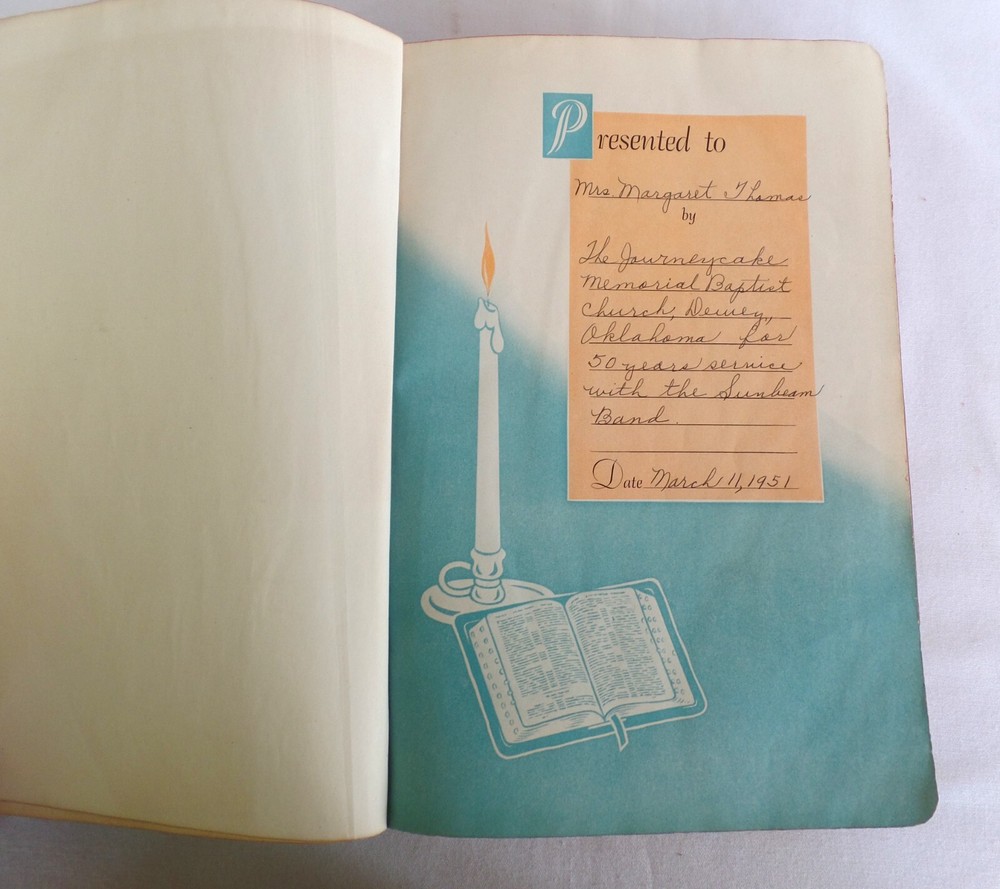 Presented to
Mrs. Margaret Thomas
by
The Journeycake
Memorial Baptist
Church, Dewey,
Oklahoma for
50 years service
with the Sunbeam
Band.
Date March 11, 1951